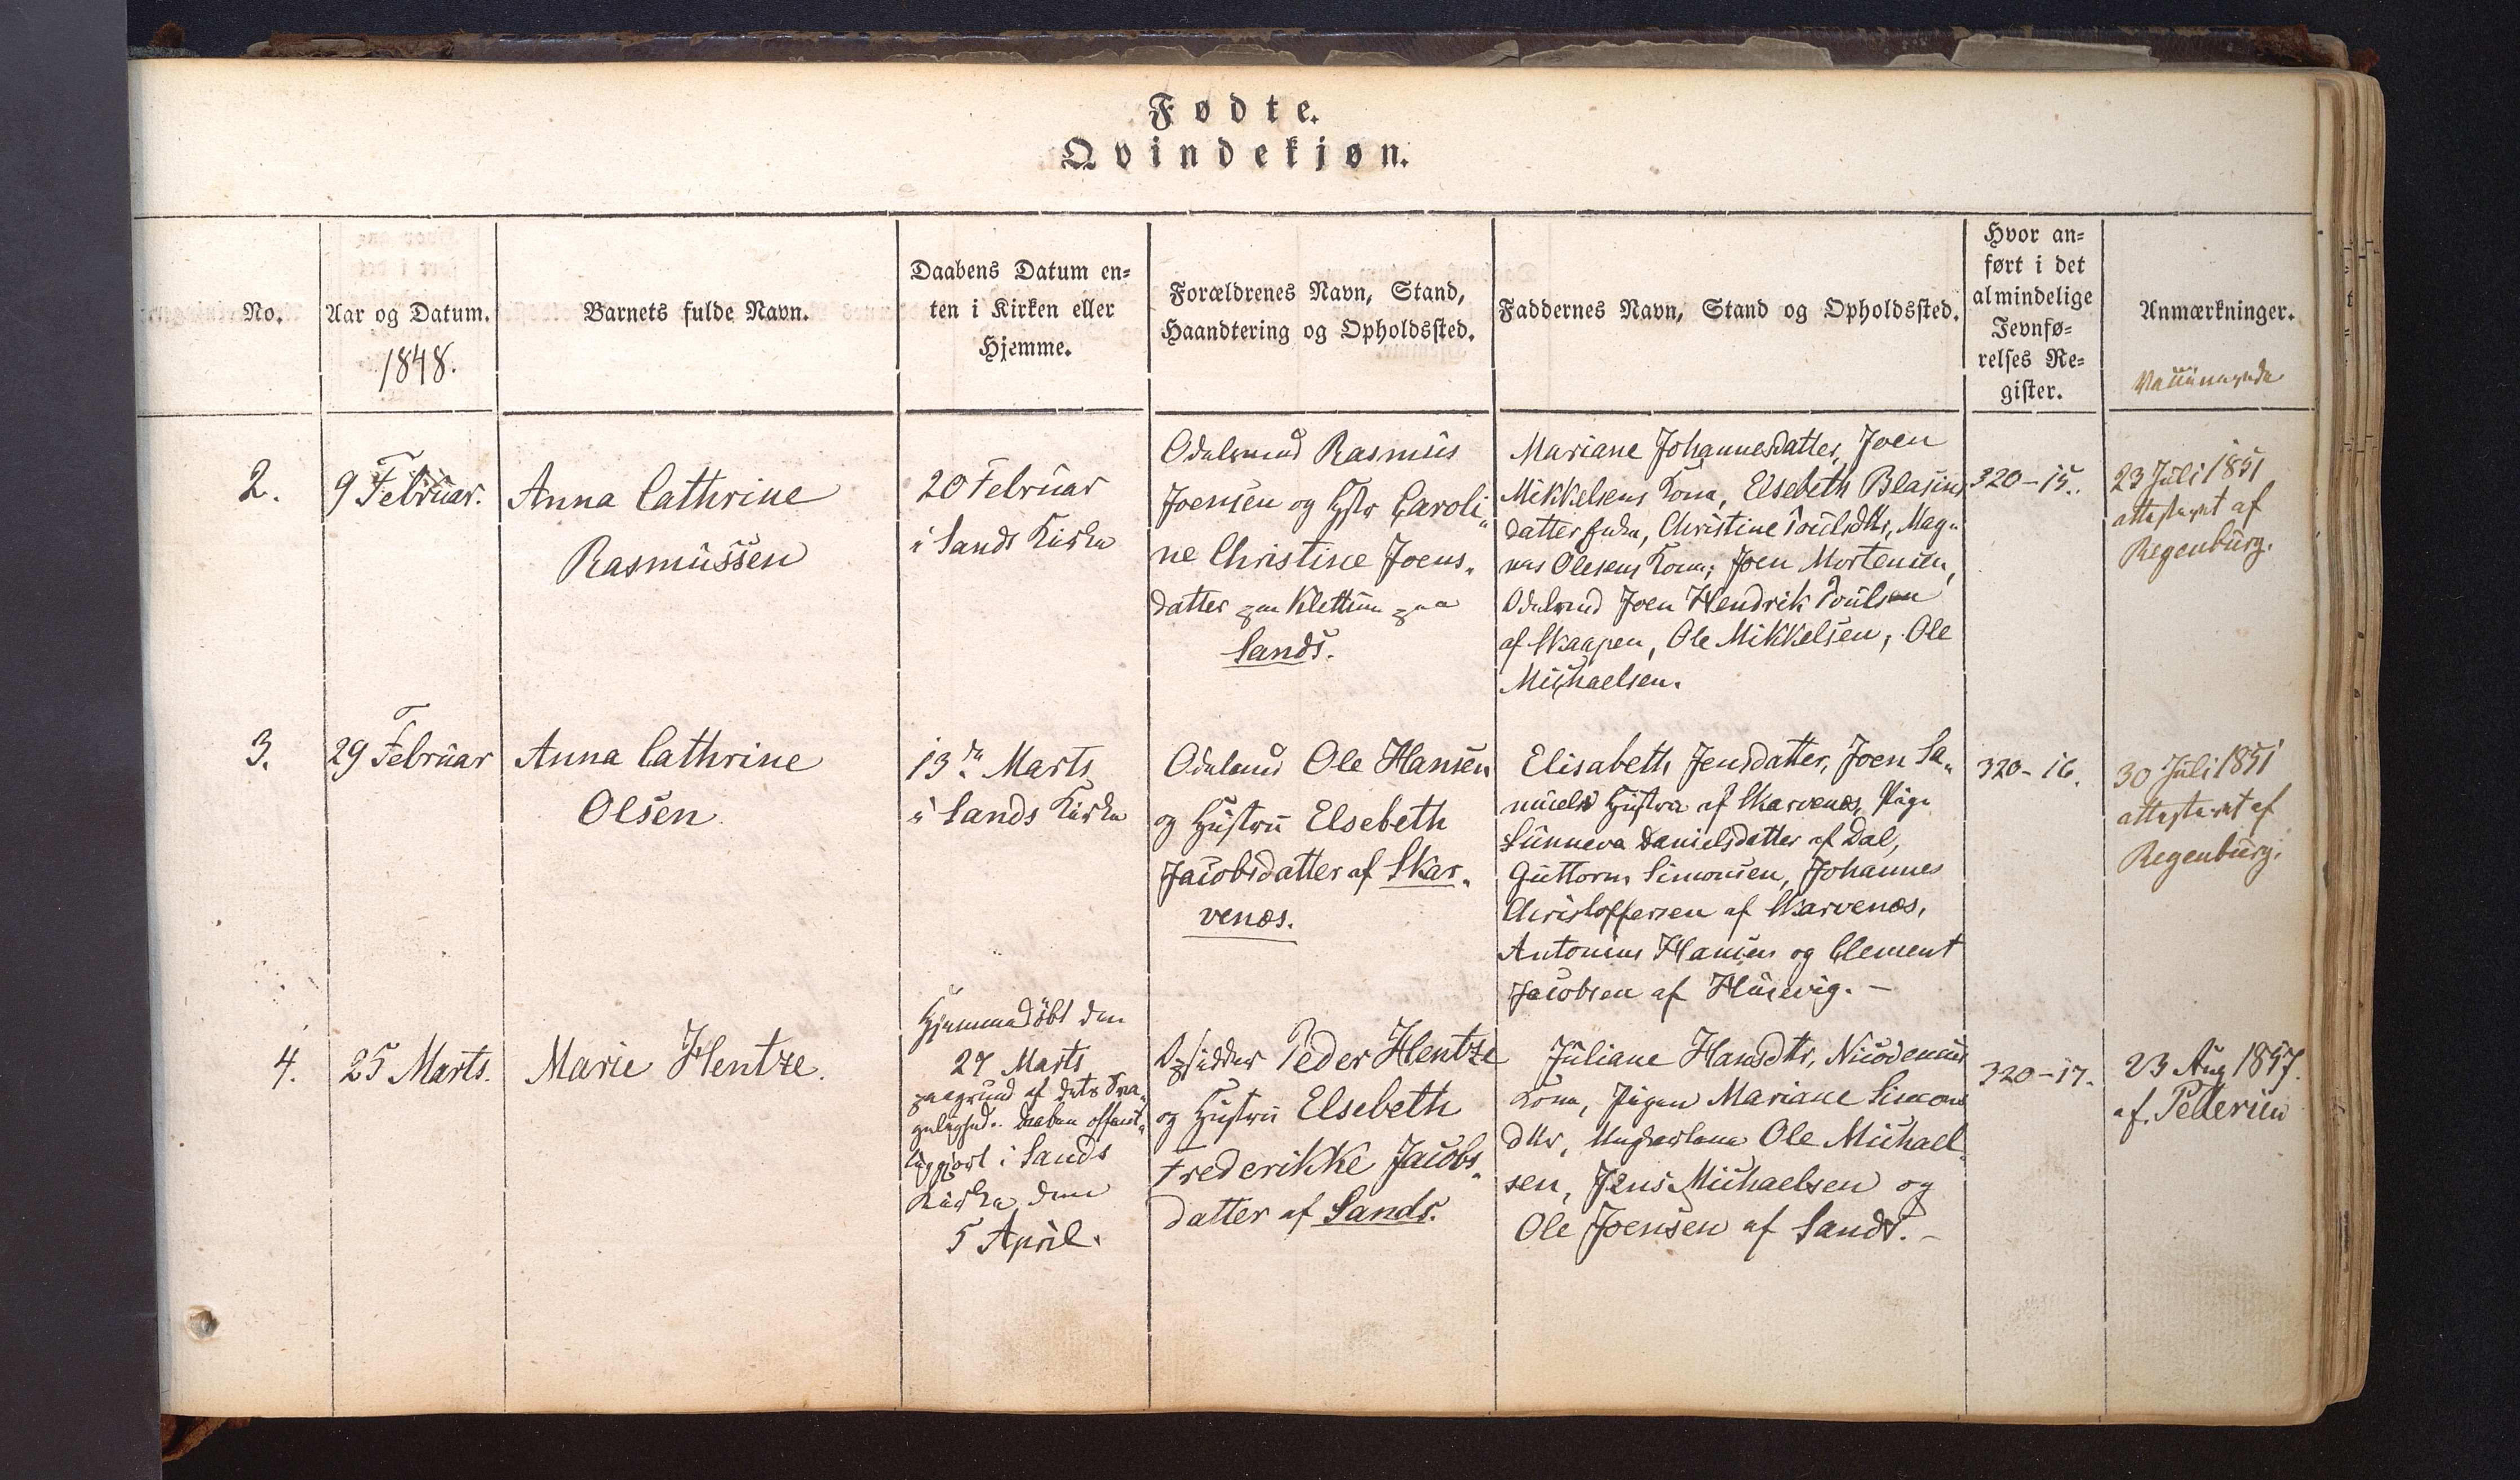 Fødte.
Qvindekjøn.
No.
Aar og Datum.
1848.
Barnets fulde Navn.
Daabens Datum en=
ten i Kirken eller
Hjemme.
Forældrenes Navn, Stand,
Haandtering og Opholdssted.
Faddernes Navn, Stand og Opholdssted.
Hvor an=
ført i det
almindelige
Jevnfø=
relses Re=
gister.
Anmærkninger.
2.
9 Februar.
Anna Cathrine
Rasmussen
20 Februar
i Sands Kirke
Odelsmand Rasmus
Joensen og Hstr Caroli-
ne Christine Joens-
datter paa Klettum paa
Sands.
Mariane Johannesdatter, Joen
Mikkelsens Kone, Elsebeth Blasius
datter Enke, Christine Poulsdttr, Mag-
nus Olesens Kone; Joen Mortensen,
Odelsmd Joen Hendrik Poulsen
af Skaapen, Ole Mikkelsen, Ole
Michaelsen.
320-15.
23 Juli 1851
attesteret af
Regenburg.
3.
29 Februar
Anna Cathrine
Olsen
13de Marts
i Sands Kirke
Odelsmd Ole Hansen
og Hustru Elsebeth
Jacobsdatter af Skar-
venæs.
Elisabeth Jensdatter, Joen Sa-
muels Hustru af Skarvenæs, Pige
Sunneva Danielsdatter af Dal,
Guttorm Simonsen, Johannes
Christoffersen af Skarvenæs,
Antonius Hansen og Clement
Jacobsen af Husevig. -
320-16.
30 Juli 1851
attesteret af
Regenburg.
4.
25 Marts.
Marie Hentze.
Hjemmedöbt den
27 Marts
paagrund af dets Sva-
gelighed. Daaben offent-
liggjort i Sands
Kirke den
5 April.
Opsidder Peder Hentze
og Hustru Elsebeth
Frederikke Jacobs-
datter af Sands.
Juliane Hansdttr, Nicodemus
Kone, Pigen Mariane Simons
dttr, Ungkarlene Ole Michael-
sen, Jens Michaelsen og
Ole Joensen af Sands. -
320-17.
23 Aug 1857.
af. Petersen